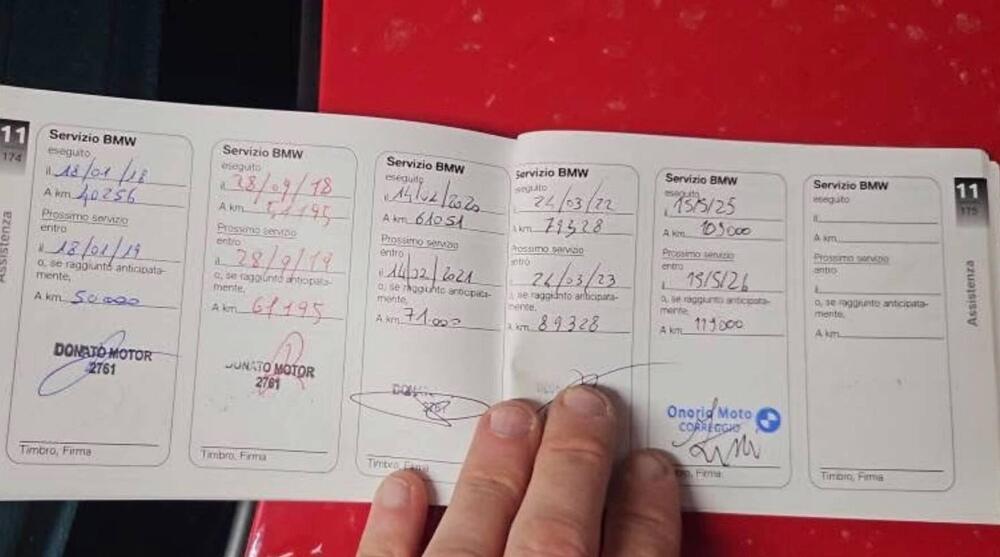 11
174
Assistenza
Servizio BMW
eseguito
il 18/01/18
A km 40256
Prossimo servizio
entro
il 18/01/19
o, se raggiunto anticipata-
mente,
A km 50000
DONATO MOTOR
2761
Timbro, Firma
Servizio BMW
eseguito
il 28/09/18
A km 51195
Prossimo servizio
entro
il 28/9/19
o, se raggiunto anticipata-
mente,
A km 61195
DONATO MOTOR
2761
Timbro, Firma
Servizio BMW
eseguito
il 14/02/2020
A km 61051
Prossimo servizio
entro
il 14/02/2021
o, se raggiunto anticipata-
mente,
A km 71.000
2761
Timbro, Firma
Servizio BMW
eseguito
24/03/22
79328
Prossimo servizio
entro
24/03/23
o, se raggiunto anticipata-
mente,
A km 89328
Servizio BMW
eseguito
15/5/25
A km 109000
Prossimo servizio
entro
15/5/26
o, se raggiunto anticipata-
mente,
A km 119000
Onorio Moto
CORREGGIO
Timbro, Firma
Servizio BMW
eseguito
il
A km
Prossimo servizio
entro
il
o, se raggiunto anticipata-
mente,
A km
Timbro, Firma
11
175
Assistenza